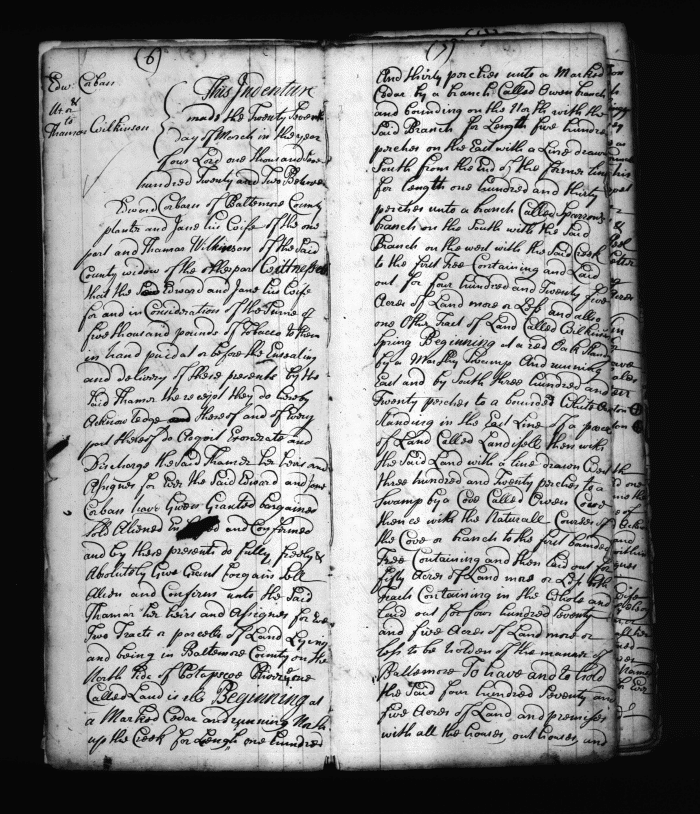 (6)
Edw. Corbass
& Ux or
to
Thamar Wilkinson
This Indenture
made the Twenty Seventh
day of March in the year
of our Lord one thousand Seven
hundred Twenty and Two Between
Edward Corbass of Baltemore County
planter and Jane his Wife of the one
part and Thamar Wilkinson of the Said
County widow of the other part Wittnesseth
that the Said Edward and Jane his Wife
for and in Consideration of the Summe of
five thousand pounds of Tobacco to them
in hand paid at or before the Ensealing
and delivery of these presents by the
Said Thamar the receipt they do hereby
Acknowledge and thereof and of Every
part thereof do Acquit Exonerate and
Discharge the Said Thamar her heirs and
Assignes for Ever the Said Edward and Jane
Corbass have Given Granted bargained
Sold Aliened and Confirmed
and by these presents do fully freely &
Absolutely Give Grant bargain Sell
Alien and Confirm unto the Said
Thamar her heirs and Assignes for Ever
Two Tracts or parcells of Land Lying
and being in Baltemore County on the
North Side of Potapscoe River one
Called Land is the Beginning at
a Marked Cedar and running North
up the Creek for Length one hundred
(7)
And thirty perches unto a Marked
Cedar by a branch Called Owens branch
and bounding on the North with the
Said Branch for Length five hundred
perches on the East with a Line drawn
South from the End of the former Line
for length one hundred and thirty
perches unto a branch Called Sparrows
branch on the South with the Said
Branch on the west with the Said Creek
to the first Tree Containing and Laid
out for four hundred and Twenty five
Acres of Land more or Less and allso
one Other Tract of Land Called Wilkins
Spring Beginning at a red Oak Standing
by a Marshy Swamp And running
East and by South three hundred and
Twenty perches to a bounded White Oak
Standing in the East Line of a parcel
of Land Called then with
the Said Land with a line drawn West
three hundred and Twenty perches to a
Swamp by a Cove Called Owens Cove
thence with the Naturall Courses of
the Cove or branch to the first bounded
Tree Containing and then laid out for
fifty Acres of Land more or Less both
tracts Containing in the Whole and
laid out for four hundred Seventy
and five Acres of Land more or
less to be holden of the manner of
Baltemore To have and to hold
the Said four hundred Seventy and
five Acres of Land and premises
with all the houses, out houses, and